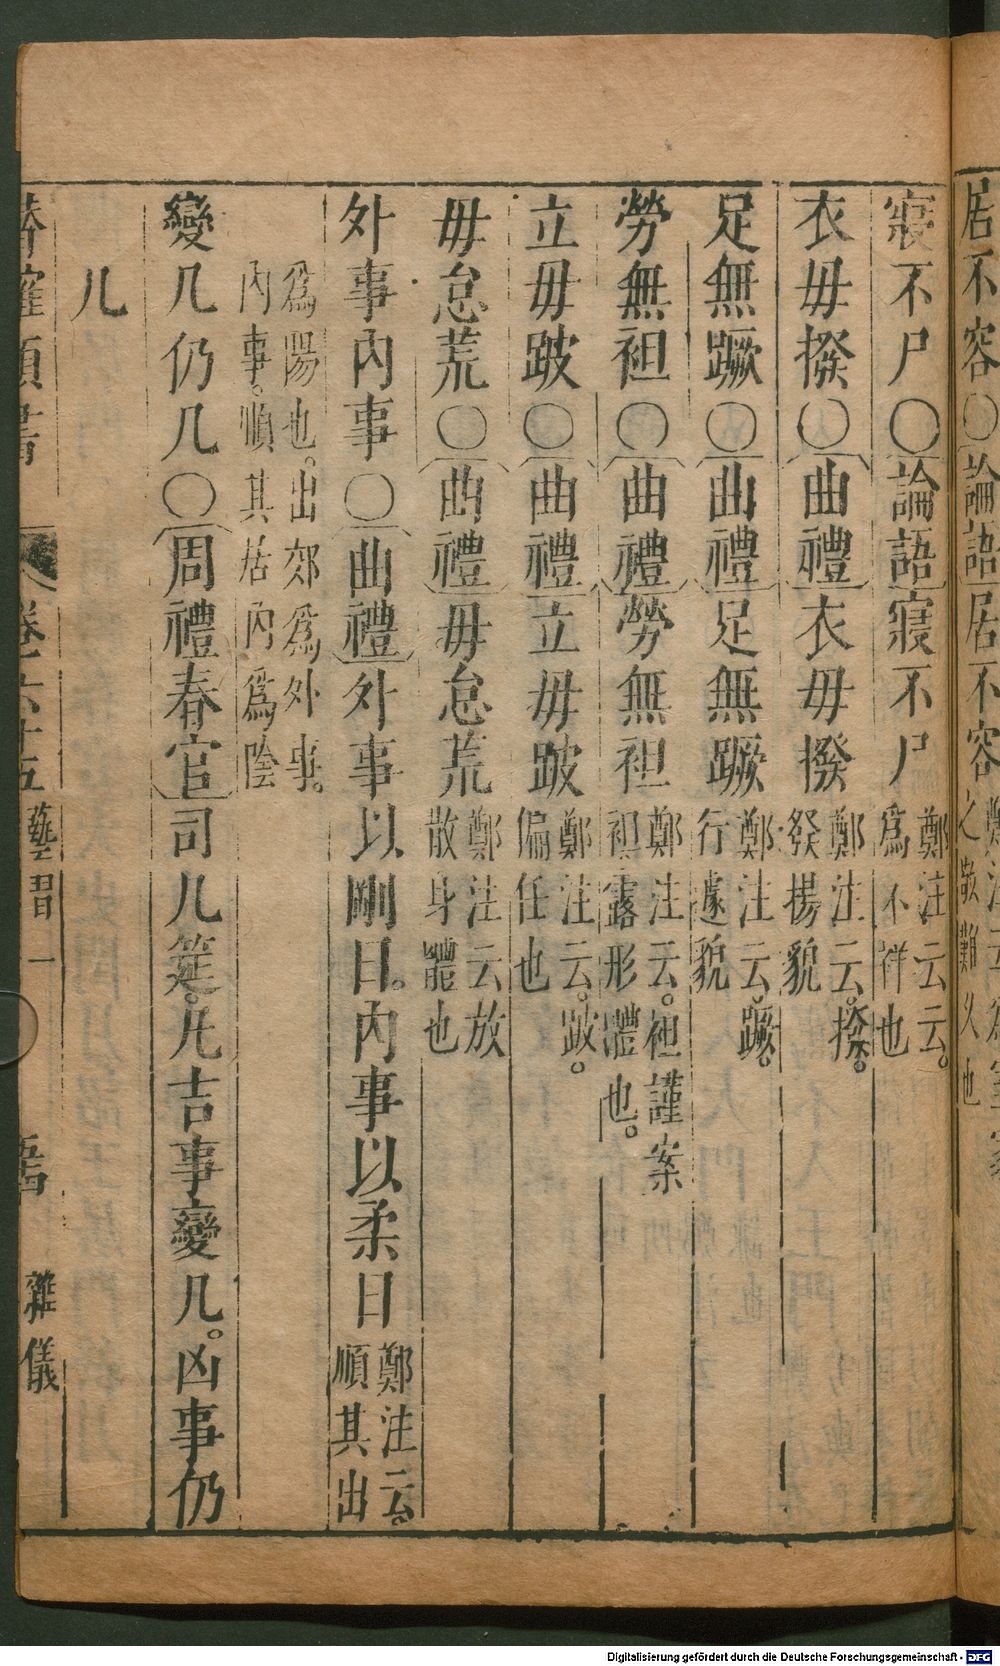 居不容〇論語居不容
之敬難久也
寢不尸〇論語寢不尸鄭注云云。
爲不祥也
衣毋撥〇曲禮衣毋撥鄭注云。撥。
發揚貌
足無蹶〇曲禮足無蹶鄭注云。蹶。
行遽貌
勞無袒〇曲禮勞無袒鄭注云。袒謹案
袒露形體也。
立毋跛〇曲禮立毋跛鄭注云。跛。
偏任也
毋怠荒〇曲禮毋怠荒鄭注云放
散身體也
外事內事〇曲禮外事以剛日。內事以柔日鄭注云。
順其出
爲陽也。出郊爲外事。
內事。順其居內爲陰
變几仍几〇周禮春官司几筵。凡吉事變几。凶事仍
几
卷一六十五 藝習一 五四 雜儀
Digitalisierung gefördert durch die Deutsche Forschungsgemeinschaft - DFG